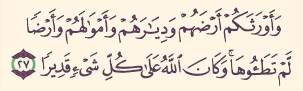 وَأَوْرَثَكُمْ أَرْضَهُمْ وَدِيَـٰرَهُمْ وَأَمْوَٰلَهُمْ وَأَرْضًا
لَّمْ تَطَـُٔوهَا ۚ وَكَانَ اللَّهُ عَلَىٰ كُلِّ شَىْءٍ قَدِيرًا ٢٧